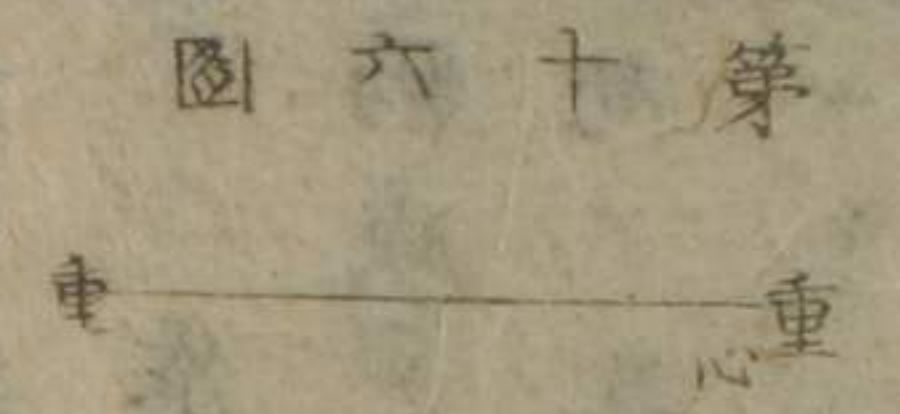 第十六圖
重心
重